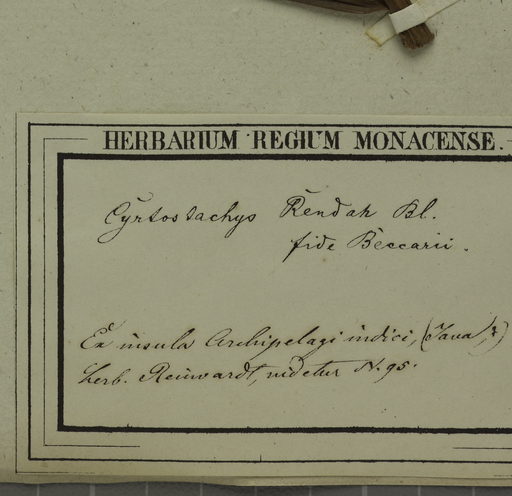 HERBARIUM REGIUM MONACENSE.
Cyrtostachys Rendah Bl.
fide Beccarii.
Ex insula Archipelagi indici, (Java,?)
herb. Reinwardt, videtur N. 95.